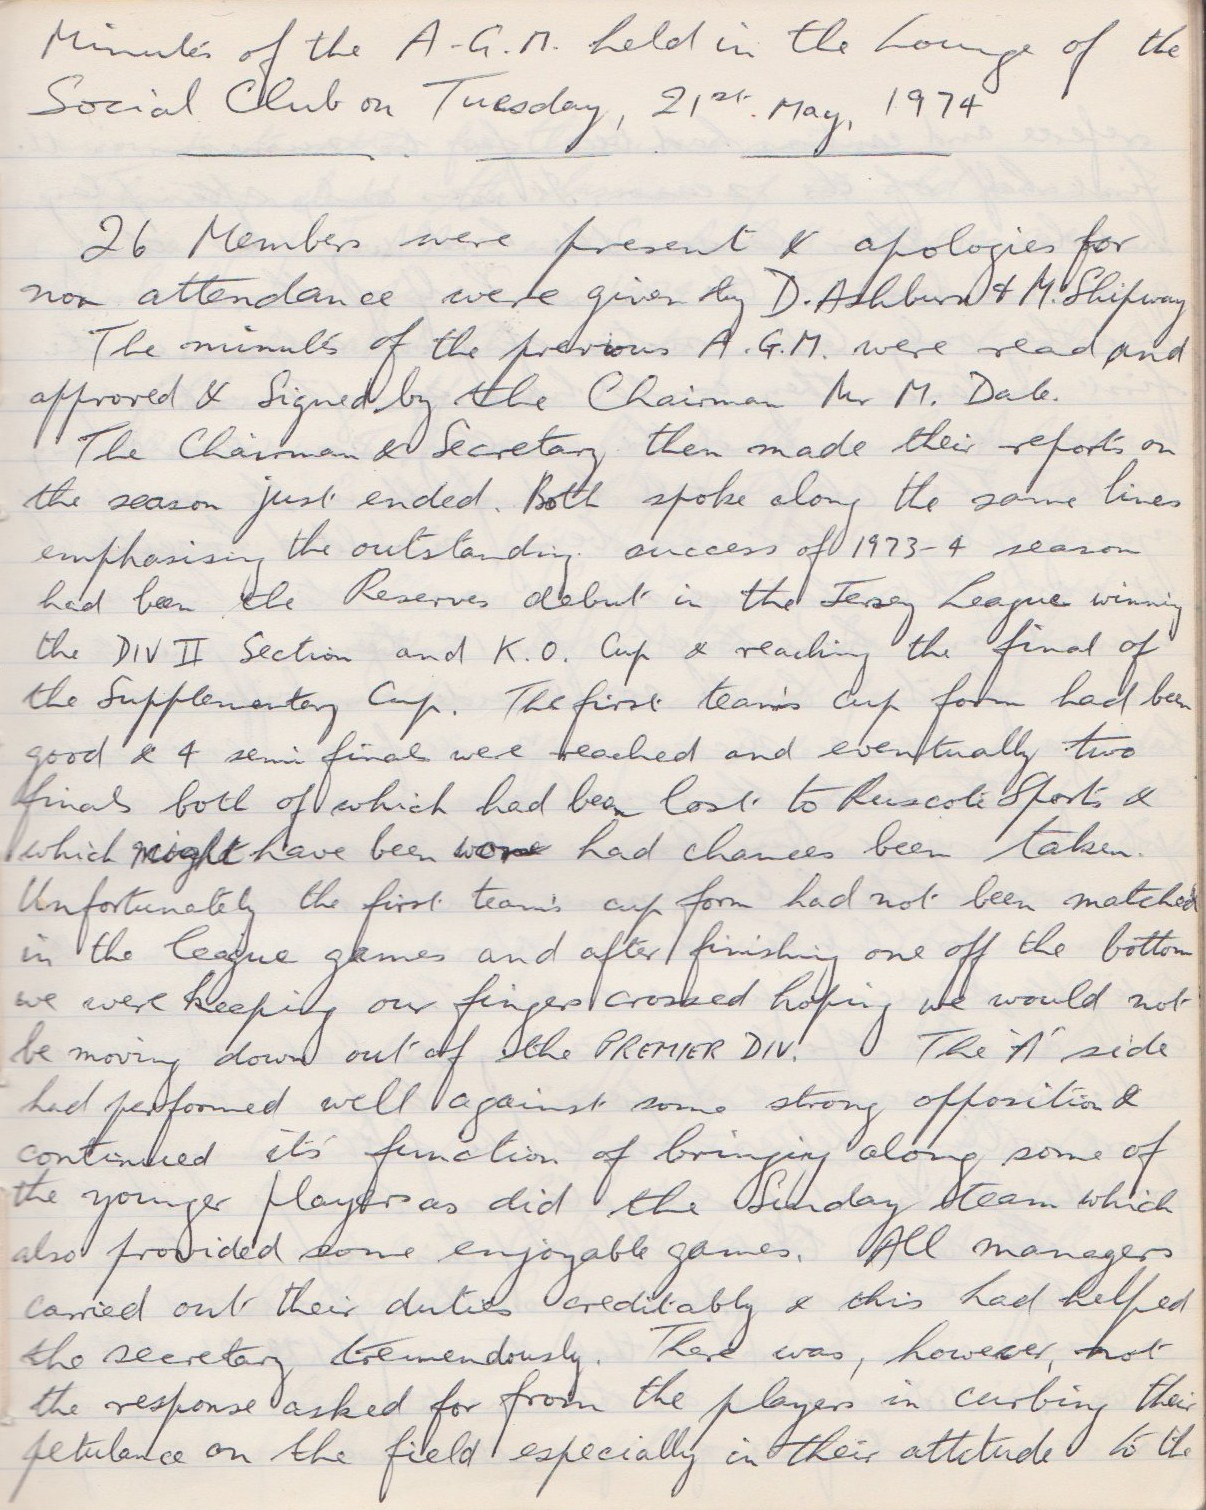 Minutes of the A.G.M. held in the Lounge of the
Social Club on Tuesday, 21st. May, 1974
26 Members were present & apologies for
non attendance were given by D. Ashburn & M. Shipway
The minutes of the previous A.G.M. were read and
approved & signed by the Chairman Mr M. Dale.
The Chairman & Secretary then made their reports on
the season just ended. Both spoke along the same lines
emphasising the outstanding success of 1973-4 season
had been the Reserves debut in the Jersey League winning
the DIV II Section and K.O. Cup & reaching the final of
the Supplementary Cup. The first team's cup form had been
good & 4 semi finals were reached and eventually two
finals both of which had been lost to Ruscote Sports &
which might have been won had chances been taken.
Unfortunately the first team's cup form had not been matched
in the league games and after finishing one off the bottom
we were keeping our fingers crossed hoping we would not
be moving down out of the PREMIER DIV. The 'A' side
had performed well against some strong opposition &
continued it's function of bringing along some of
the younger players as did the Sunday team which
also provided some enjoyable games. All managers
carried out their duties creditably & this had helped
the secretary tremendously. There was, however, not
the response asked for from the players in curbing their
petulance on the field especially in their attitude to the